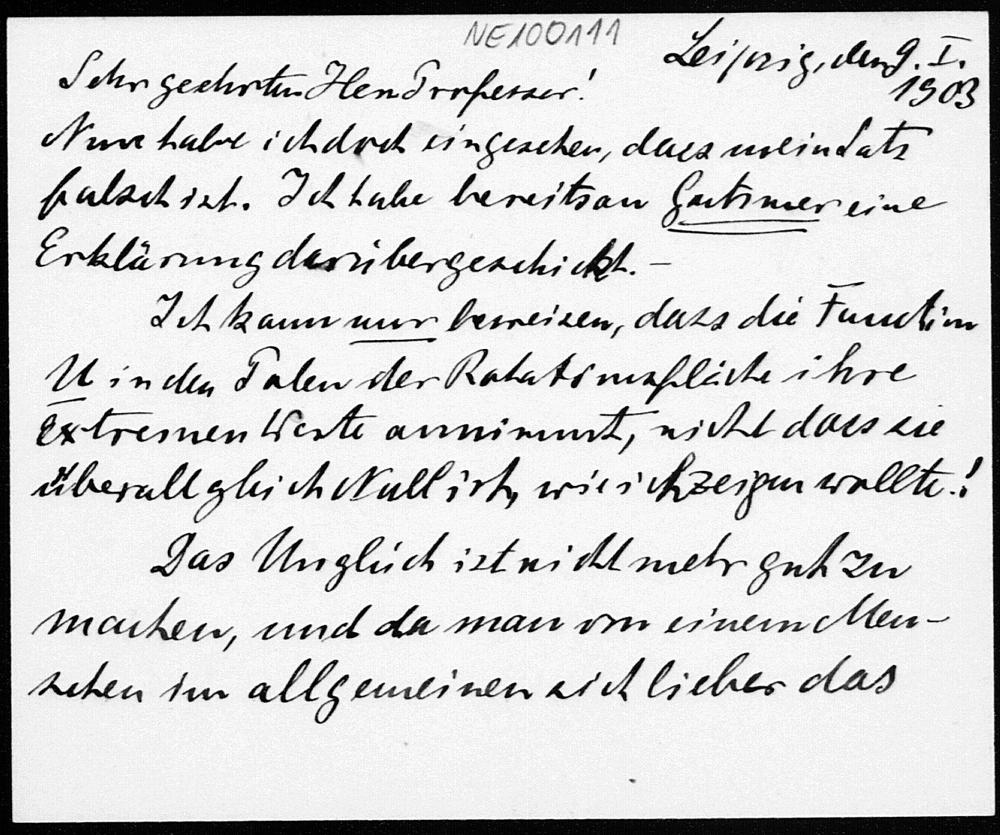 NE100111
Leipzig, den 9. I.
1903
Sehr geehrter Herr Professor!
Nun habe ich doch eingesehen, dass mein Satz
falsch ist. Ich habe bereits an Gutzmer eine
Erklärung darüber geschickt. —
Ich kann nur beweisen, dass die Function
U in den Polen der Rotationsfläche ihre
extremen Werte annimmt, nicht dass sie
überall gleich Null ist, wie ich zeigen wollte!
Das Unglück ist nicht mehr gut zu
machen, und da man von einem Men-
schen im allgemeinen sich lieber das